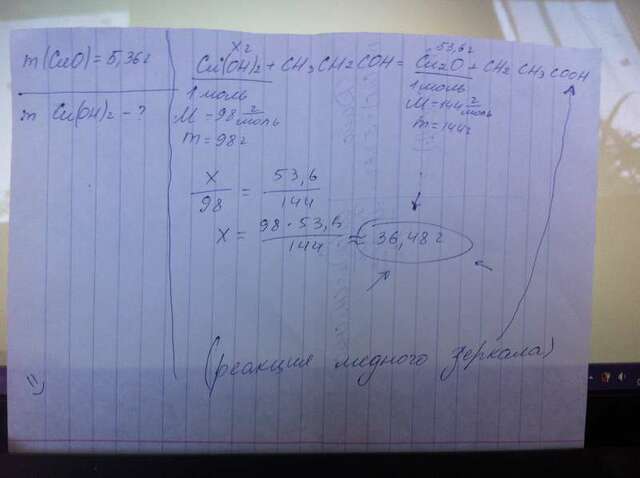 m(CuO) = 5,36г
m Cu(OH)2 - ?
Xг 53,6г
Cu(OH)2 + CH3CH2COH = Cu2O + CH2CH3COOH
1 моль 1 моль
M = 98 г/моль M = 144 г/моль
m = 98г m = 144г
X/98 = 53,6/144
X = 98·53,6/144 = 36,48г
(реакция медного зеркала)
=)